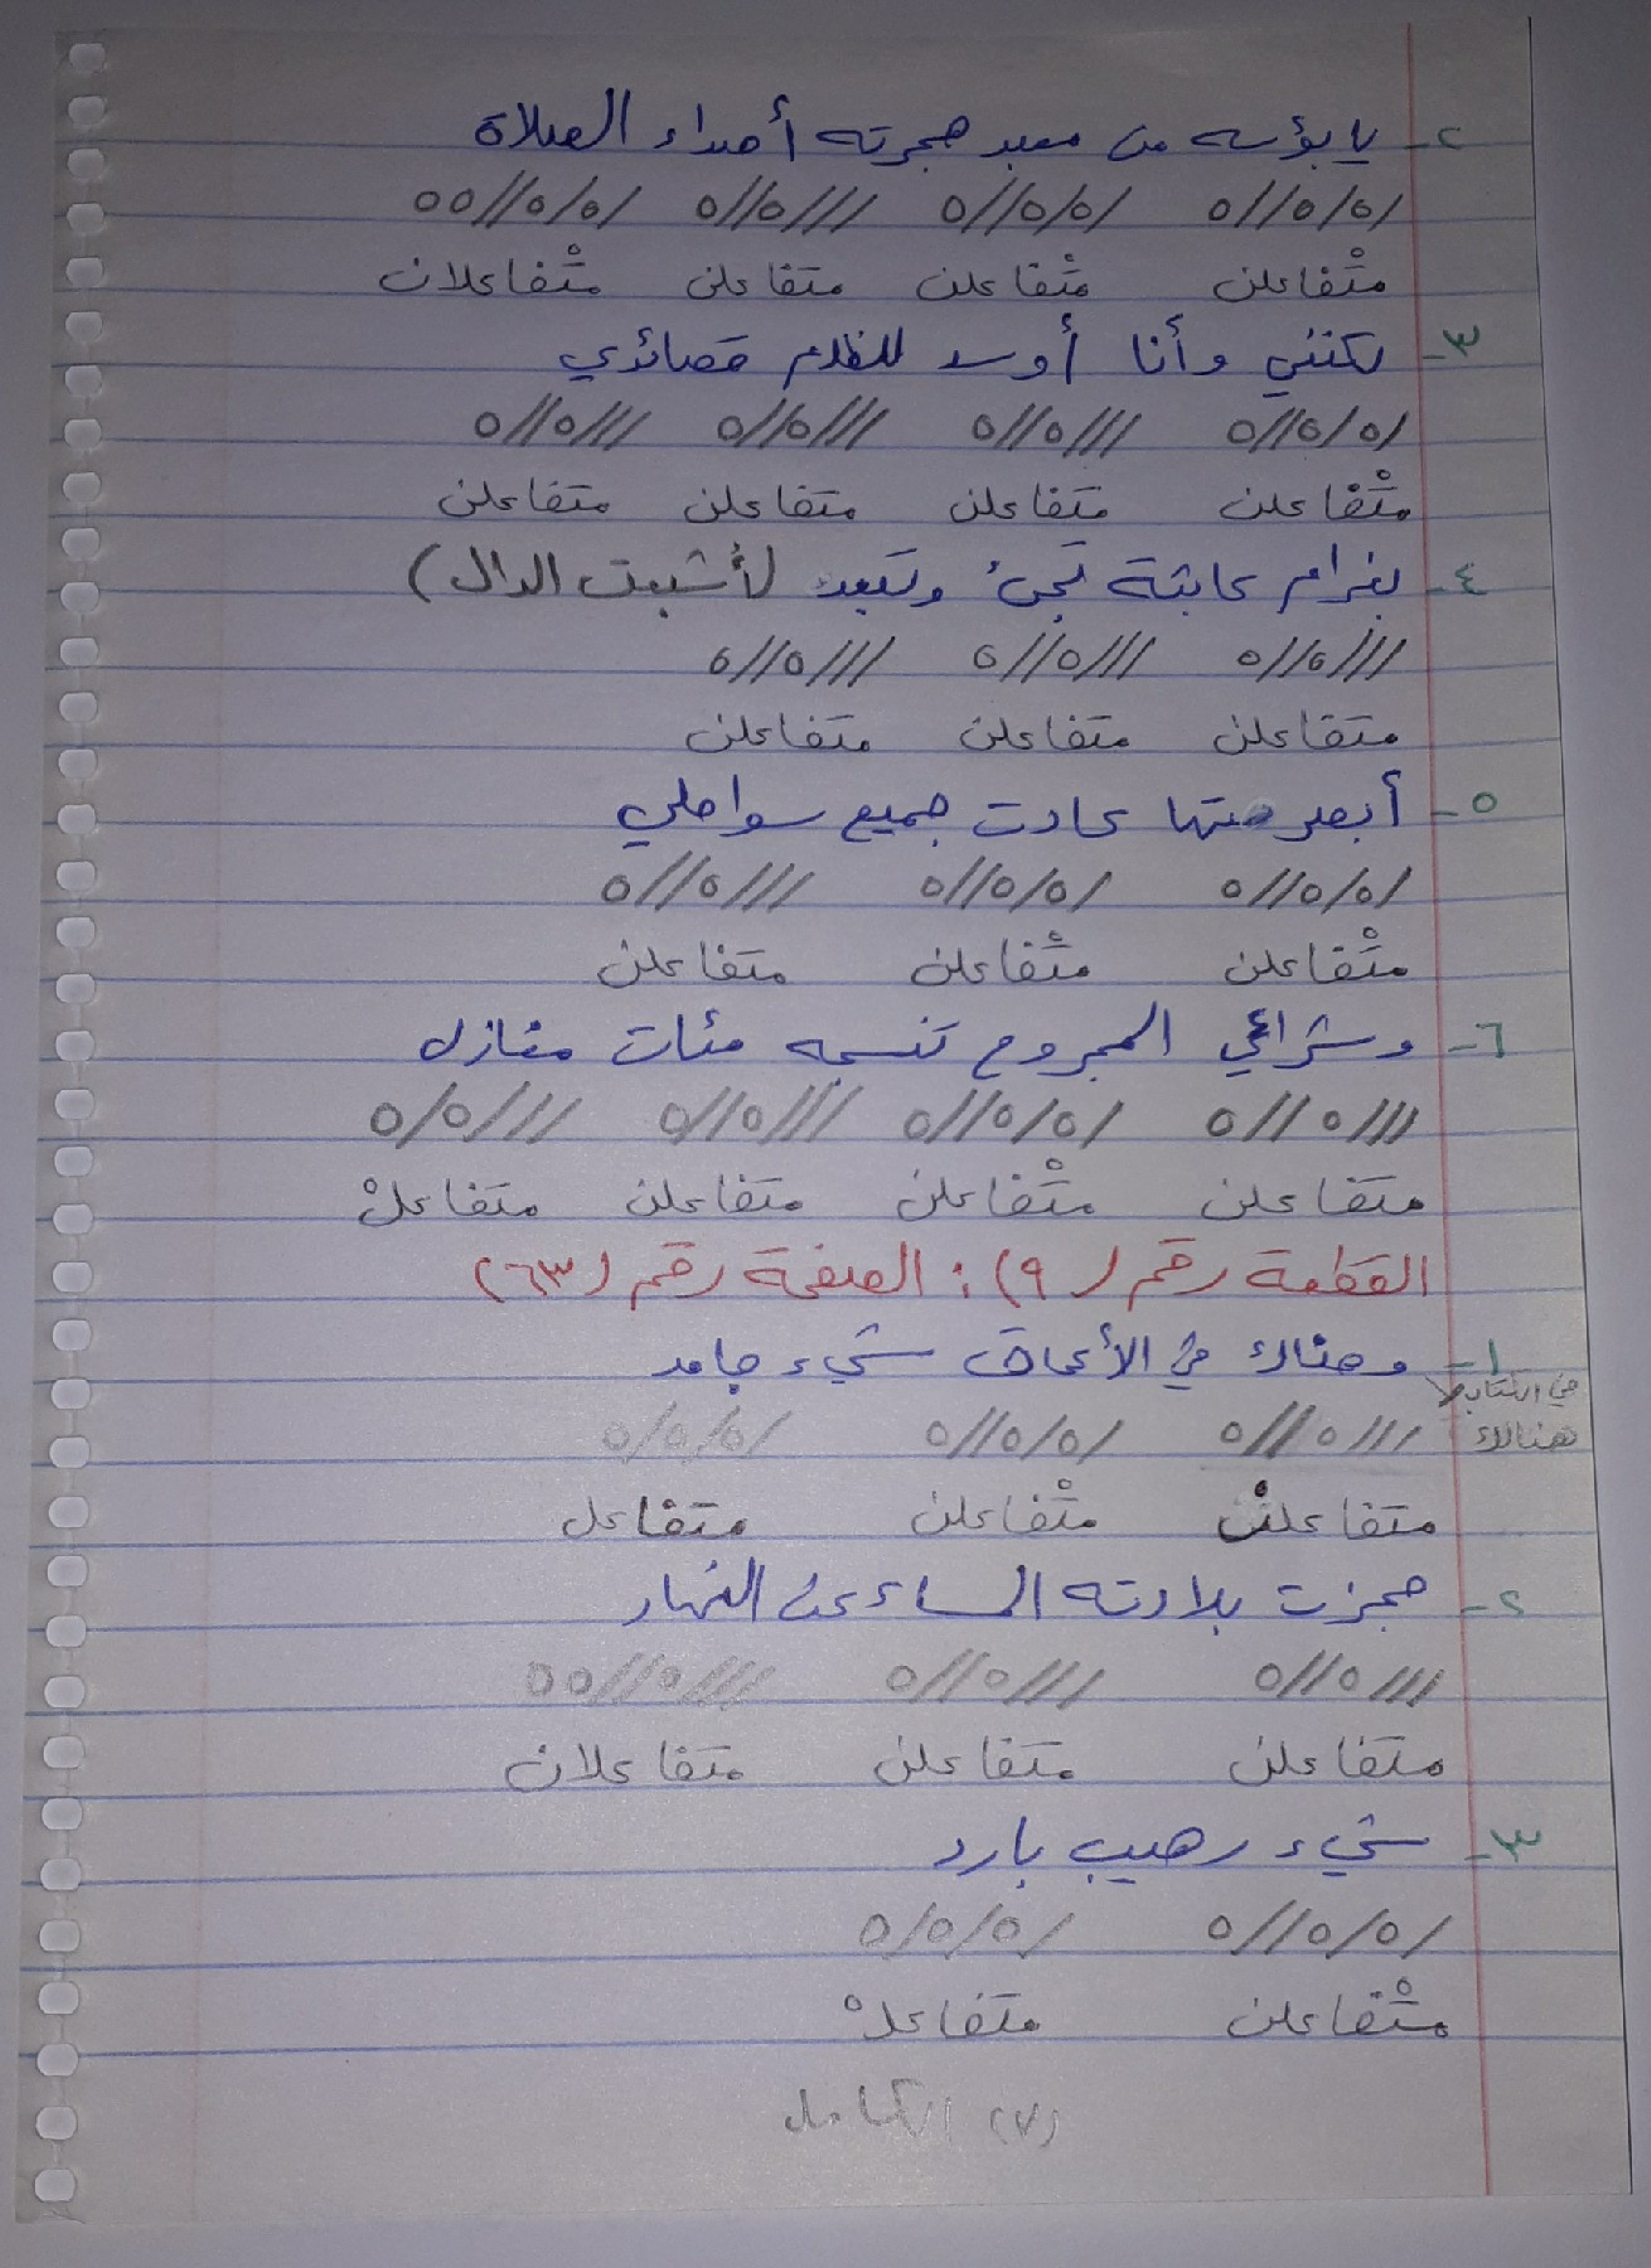 ٢- يا بؤسه من معبد هجرته أصداء الصلاة
/٥/٥//٥ /٥/٥//٥ ///٥//٥ /٥/٥//٥٥
متْفاعلن متْفاعلن متفاعلن متْفاعلان
٣- لكنني وأنا أوسد للظلام قصائدي
/٥/٥//٥ ///٥//٥ ///٥//٥ ///٥//٥
متْفاعلن متفاعلن متفاعلن متفاعلن
٤- بغرام عابثة تجئ وتبعد (أشبعت الدال)
///٥//٥ ///٥//٥ ///٥//٥
متفاعلن متفاعلن متفاعلن
٥- أبصرتها عادت جميع سواحلي
/٥/٥//٥ /٥/٥//٥ ///٥//٥
متْفاعلن متْفاعلن متفاعلن
٦- وشراعي المجروح تنسجه مئات مغازل
///٥//٥ /٥/٥//٥ ///٥//٥ ///٥/٥
متفاعلن متْفاعلن متفاعلن متفاعلْ
القطعة رقم (٩): الصفحة رقم (٦٣)
١- وهناك في الأعماق شيء جامد
في الكتاب
هنالك
///٥//٥ /٥/٥//٥ /٥/٥/٥
متفاعلنْ متْفاعلن متفاعل
٢- حجزت بلادته المساء عن النهار
///٥//٥ ///٥//٥ ///٥//٥٥
متفاعلن متفاعلن متفاعلان
٣- شيء رهيب بارد
/٥/٥//٥ /٥/٥/٥
متْفاعلن متفاعلْ
(٧) الكامل